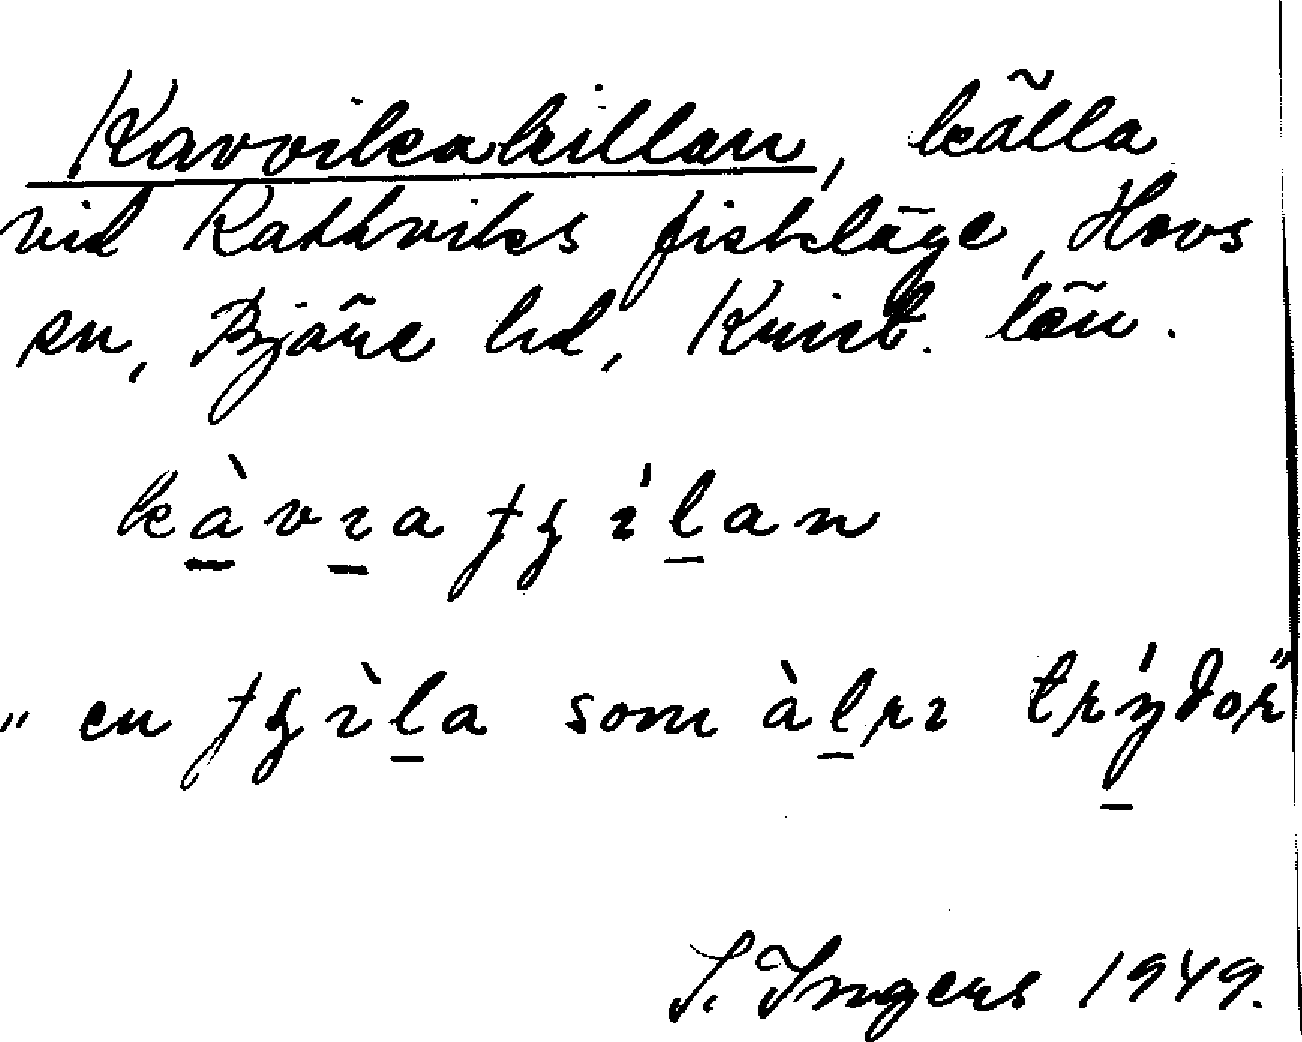 Kavvikakillan, källa
vid Kattviks fiskläge, Hovs
sn, Bjäre hd, Krist. län.
kàvɪa ʄȥílan
"en ʄȥìla som àlrɪ trýtor"
S. Ingers 1949.